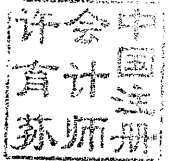 中国注册
会计师
许育荪